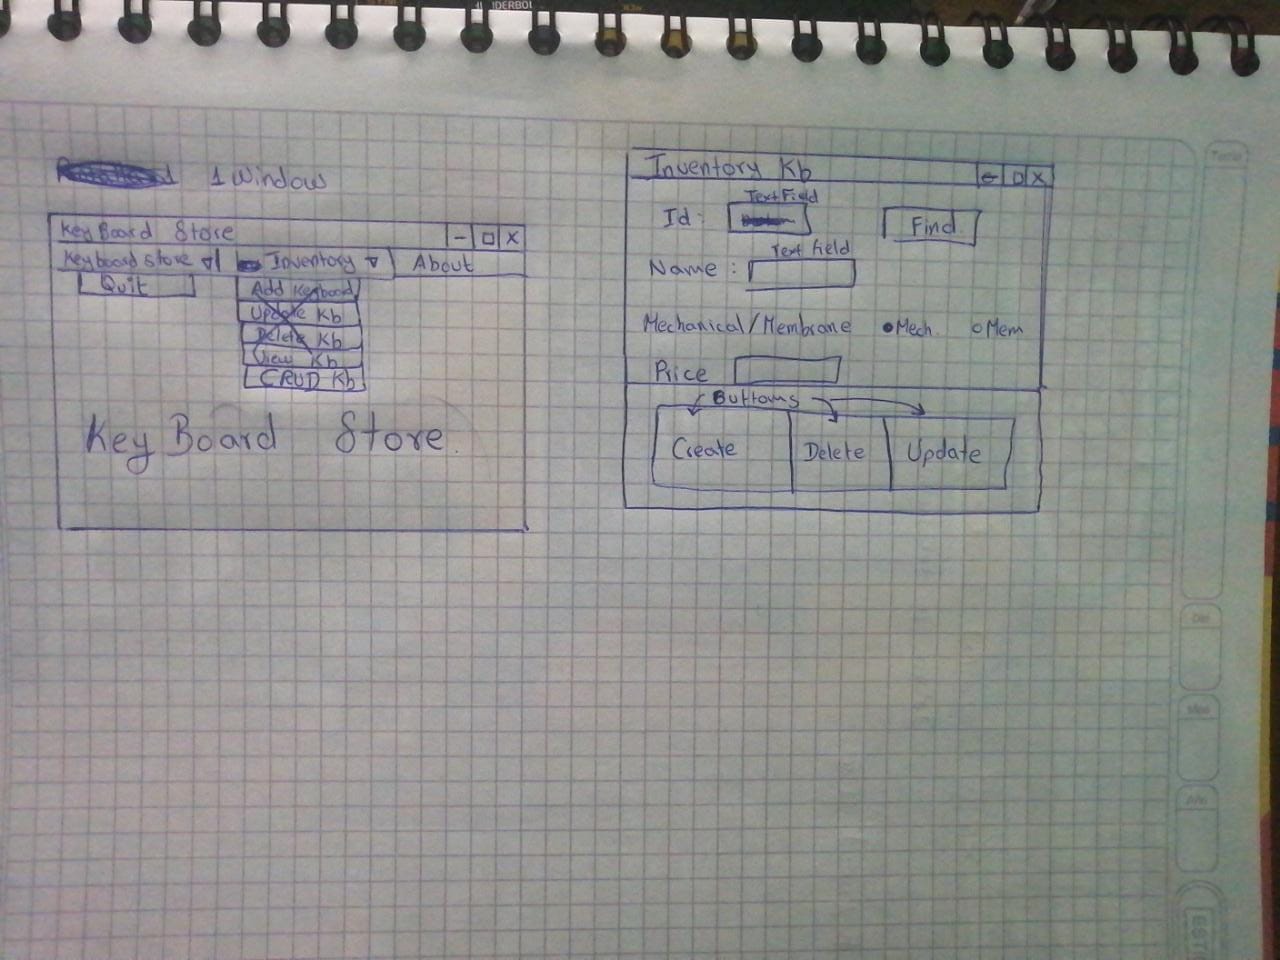 1 Window
Key Board Store - □ X
Keyboard store ▽ Inventory ▽ About
Quit
Add Keyboad
Update Kb
Delete Kb
View Kb
CRUD Kb
Key Board Store.
Inventory Kb □ X
Text Field
Id: Find
Text field
Name :
Mechanical/Membrane ●Mech. ○Mem
Price
Buttoms
Create Delete Update